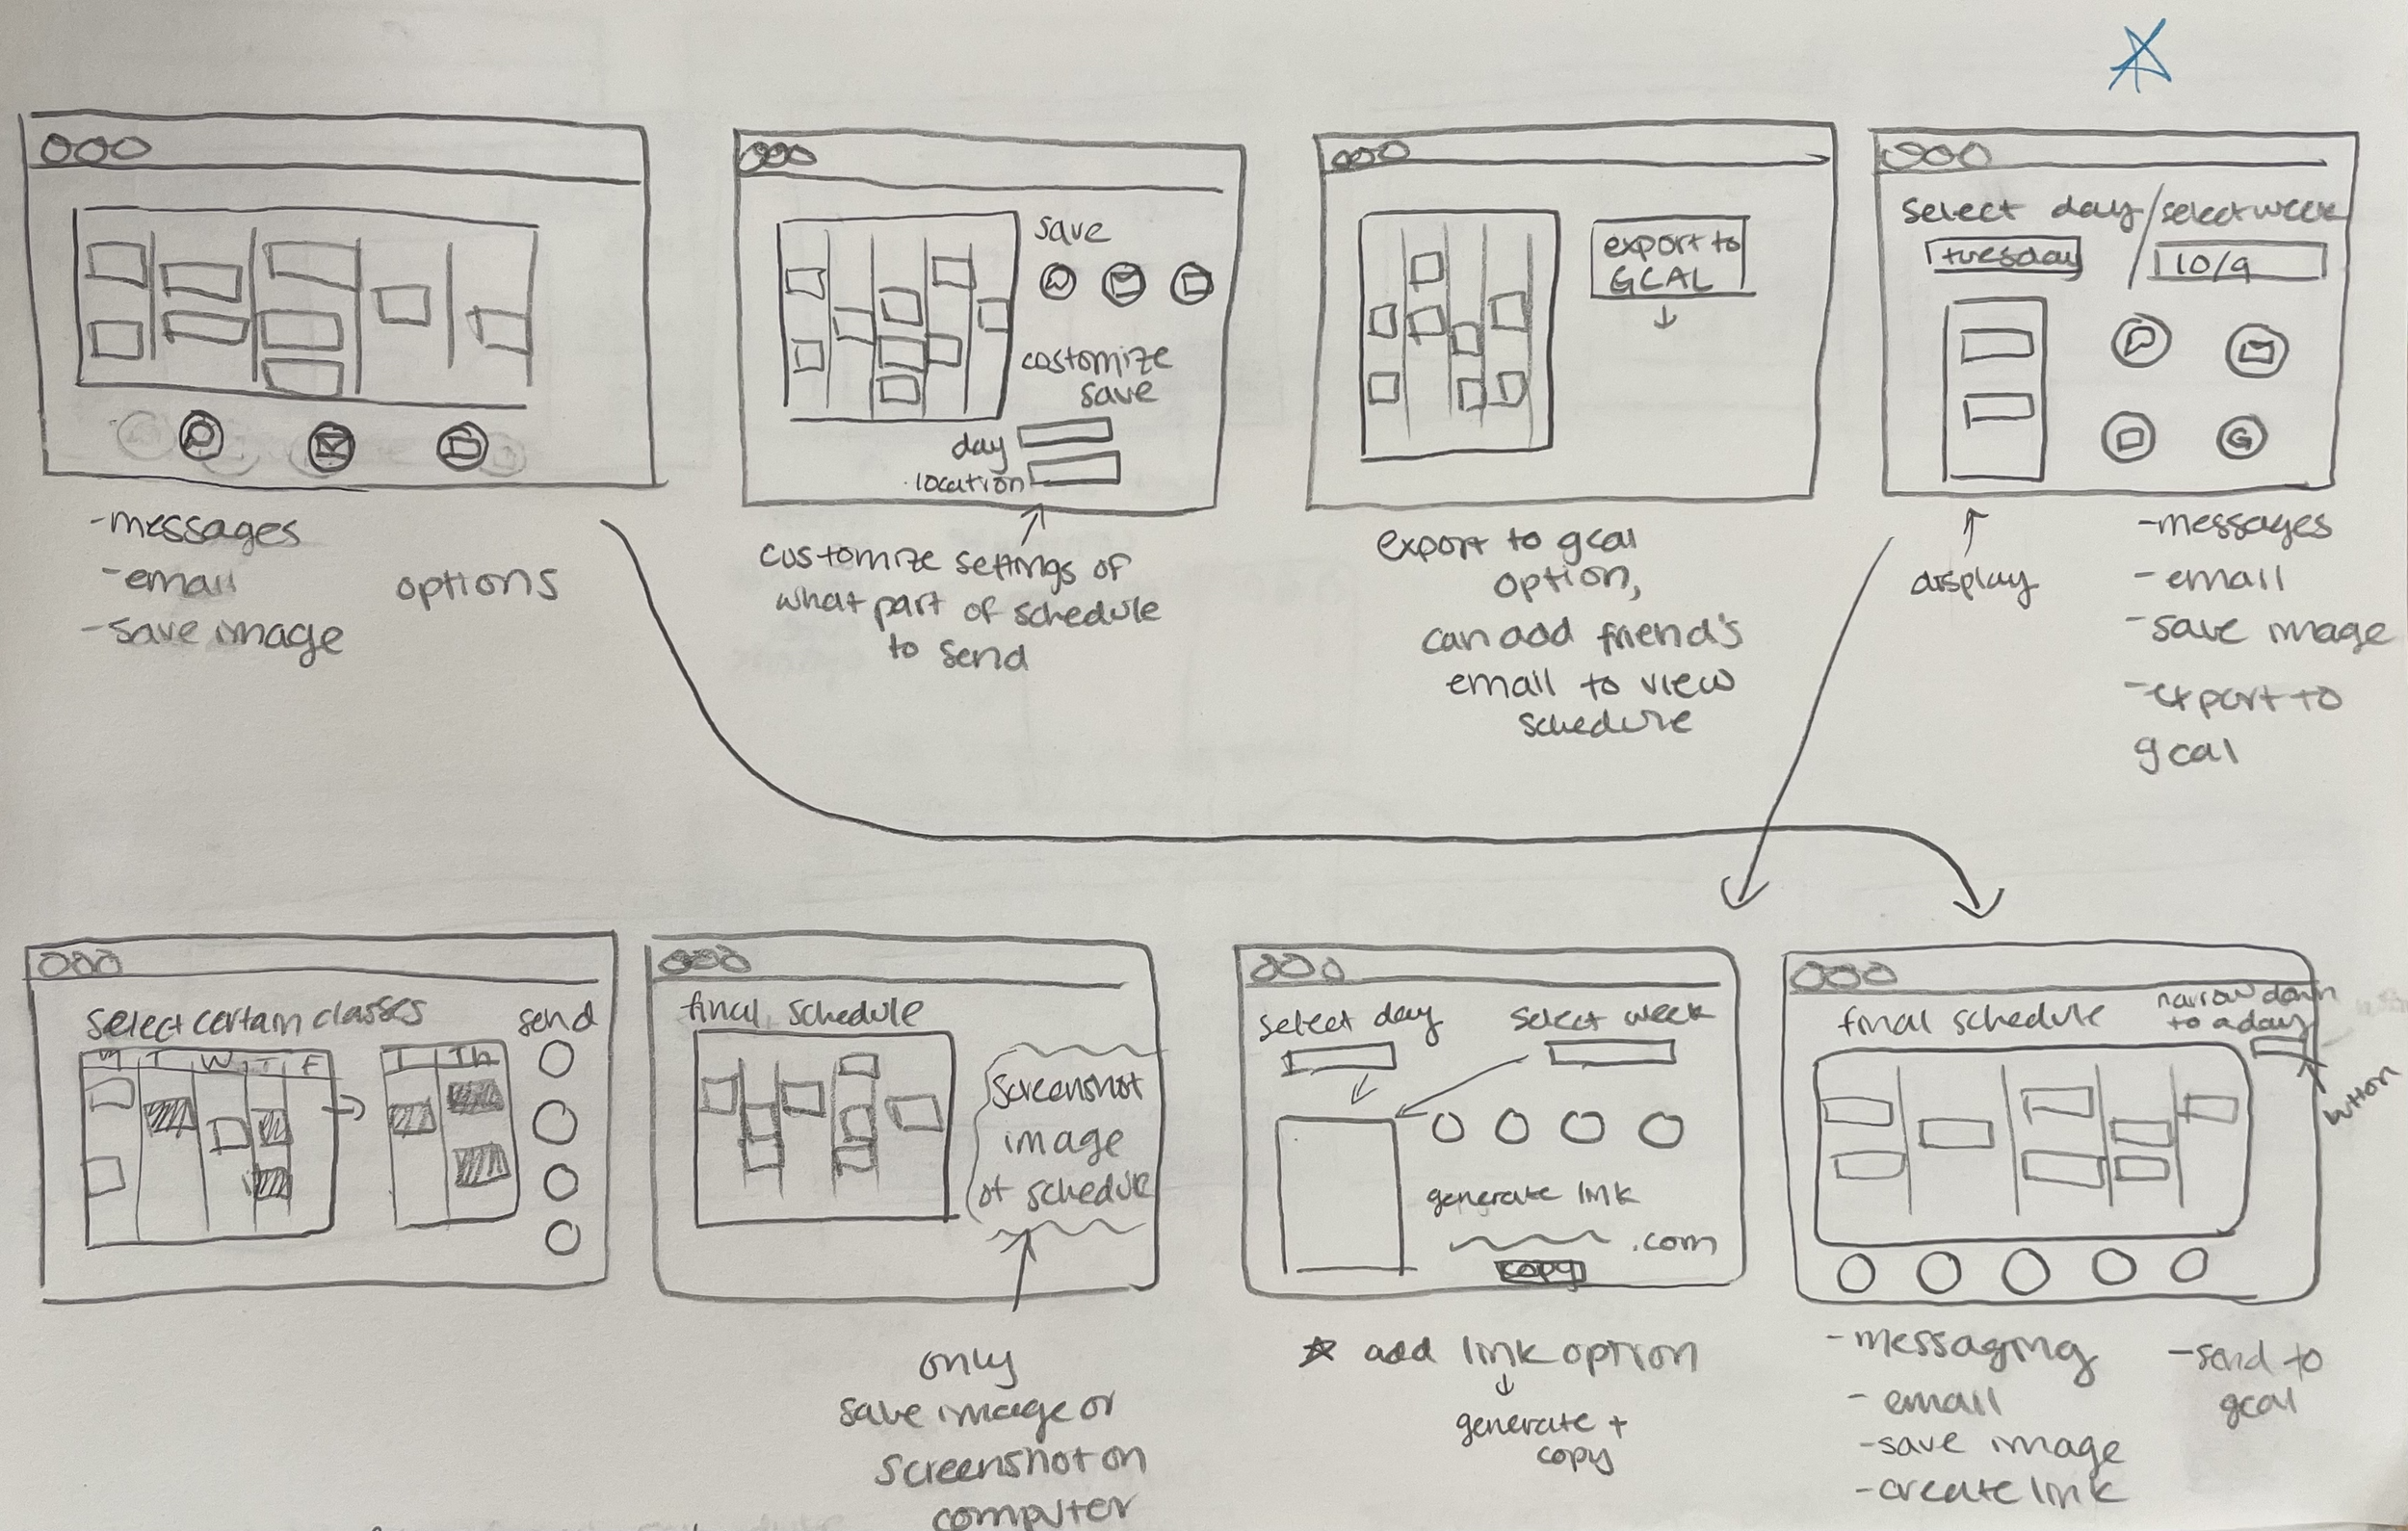 save
costomize
save
day
location
export to
GCAL
select day/select week
tuesday
10/9
G
-messages
-email
-save image
options
customize settings of
what part of schedule
to send
export to gcal
option,
can add friend's
email to view
schedule
display
-messages
-email
-save image
-export to
gcal
select certain classes
send
M T W T F
T Th
final schedule
screenshot
image
of schedule
select day
select week
generate link
.com
copy
final schedule
narrow down
to a day
button
only
save image or
screenshot on
computer
add link option
generate +
copy
-messaging
-email
-save image
-create link
-send to
gcal